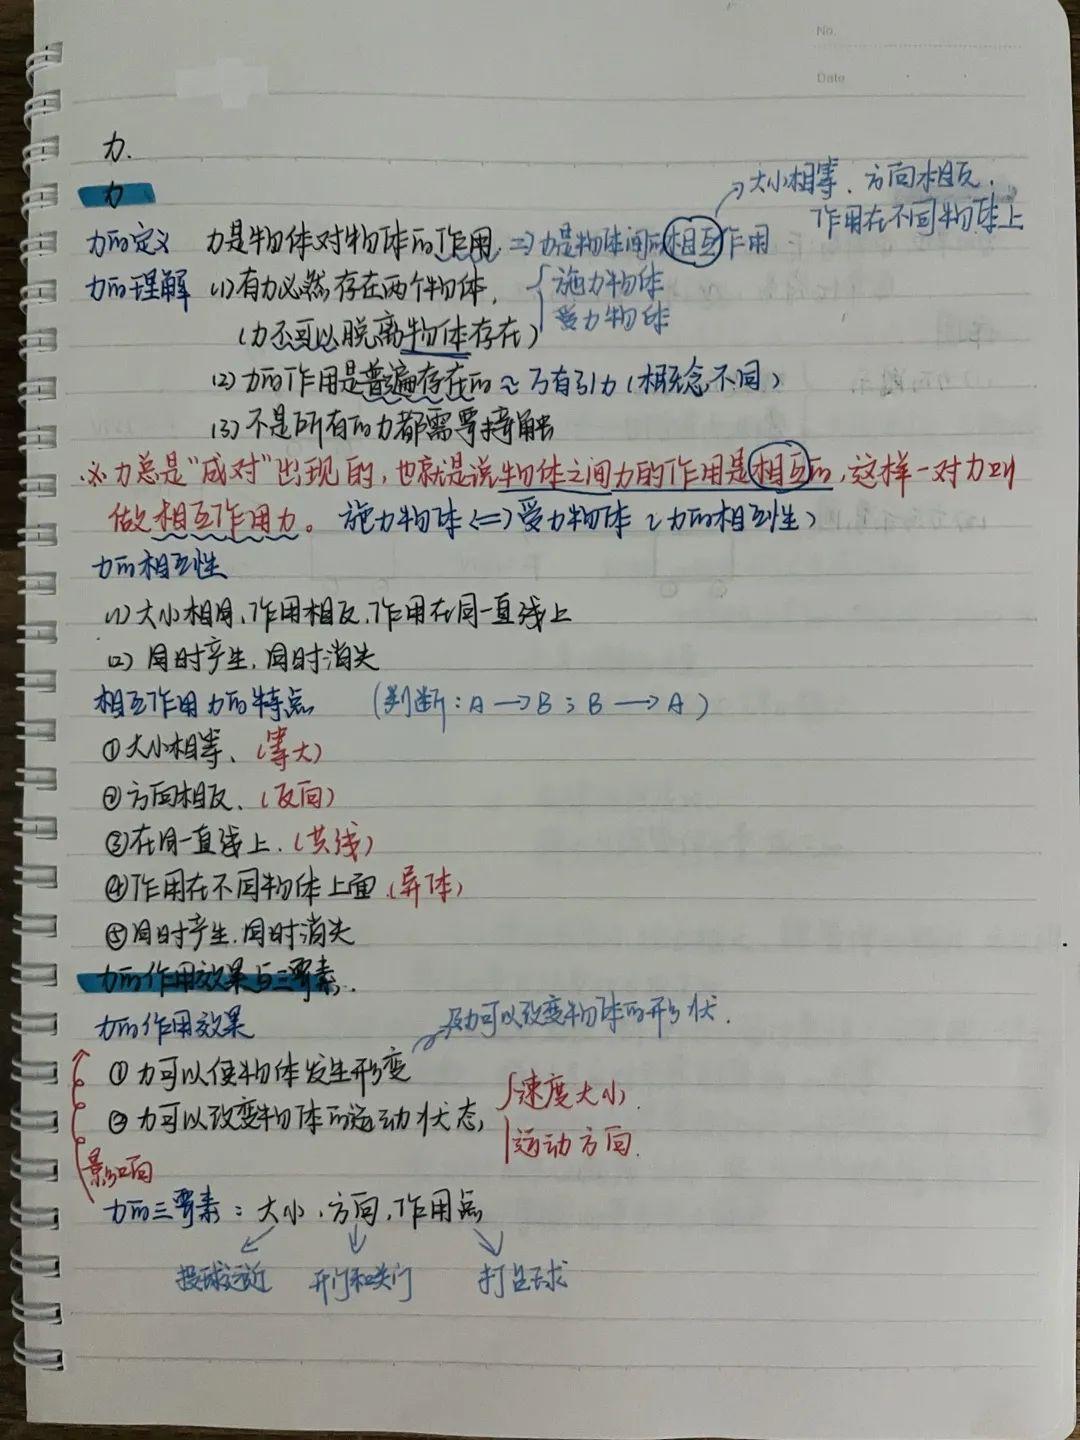 No.
Date
力.
力
大小相等、方向相反、
作用在不同物体上
力的定义 力是物体对物体的作用 => 力是物体间的相互作用
力的理解 (1)有力必然存在两个物体, { 施力物体
受力物体
(力不可以脱离物体存在)
(2) 力的作用是普遍存在的 ≈ 万有引力(概念不同)
(3) 不是所有的力都需要接触
※力总是"成对"出现的,也就是说物体之间力的作用是相互的,这样一对力叫
做相互作用力。 施力物体<=>受力物体(力的相互性)
力的相互性
(1) 大小相同,作用相反,作用在同一直线上
(2) 同时产生,同时消失
相互作用力的特点 (判断:A→B;B→A)
①大小相等、(等大)
②方向相反、(反向)
③在同一直线上、(共线)
④作用在不同物体上面(异体)
⑤同时产生,同时消失
力的作用效果与三要素.
力的作用效果 力可以改变物体的形状.
① 力可以使物体发生形变
② 力可以改变物体的运动状态, { 速度大小.
运动方向.
影响
力的三要素:大小,方向,作用点
投球远近 开门和关门 打乒球